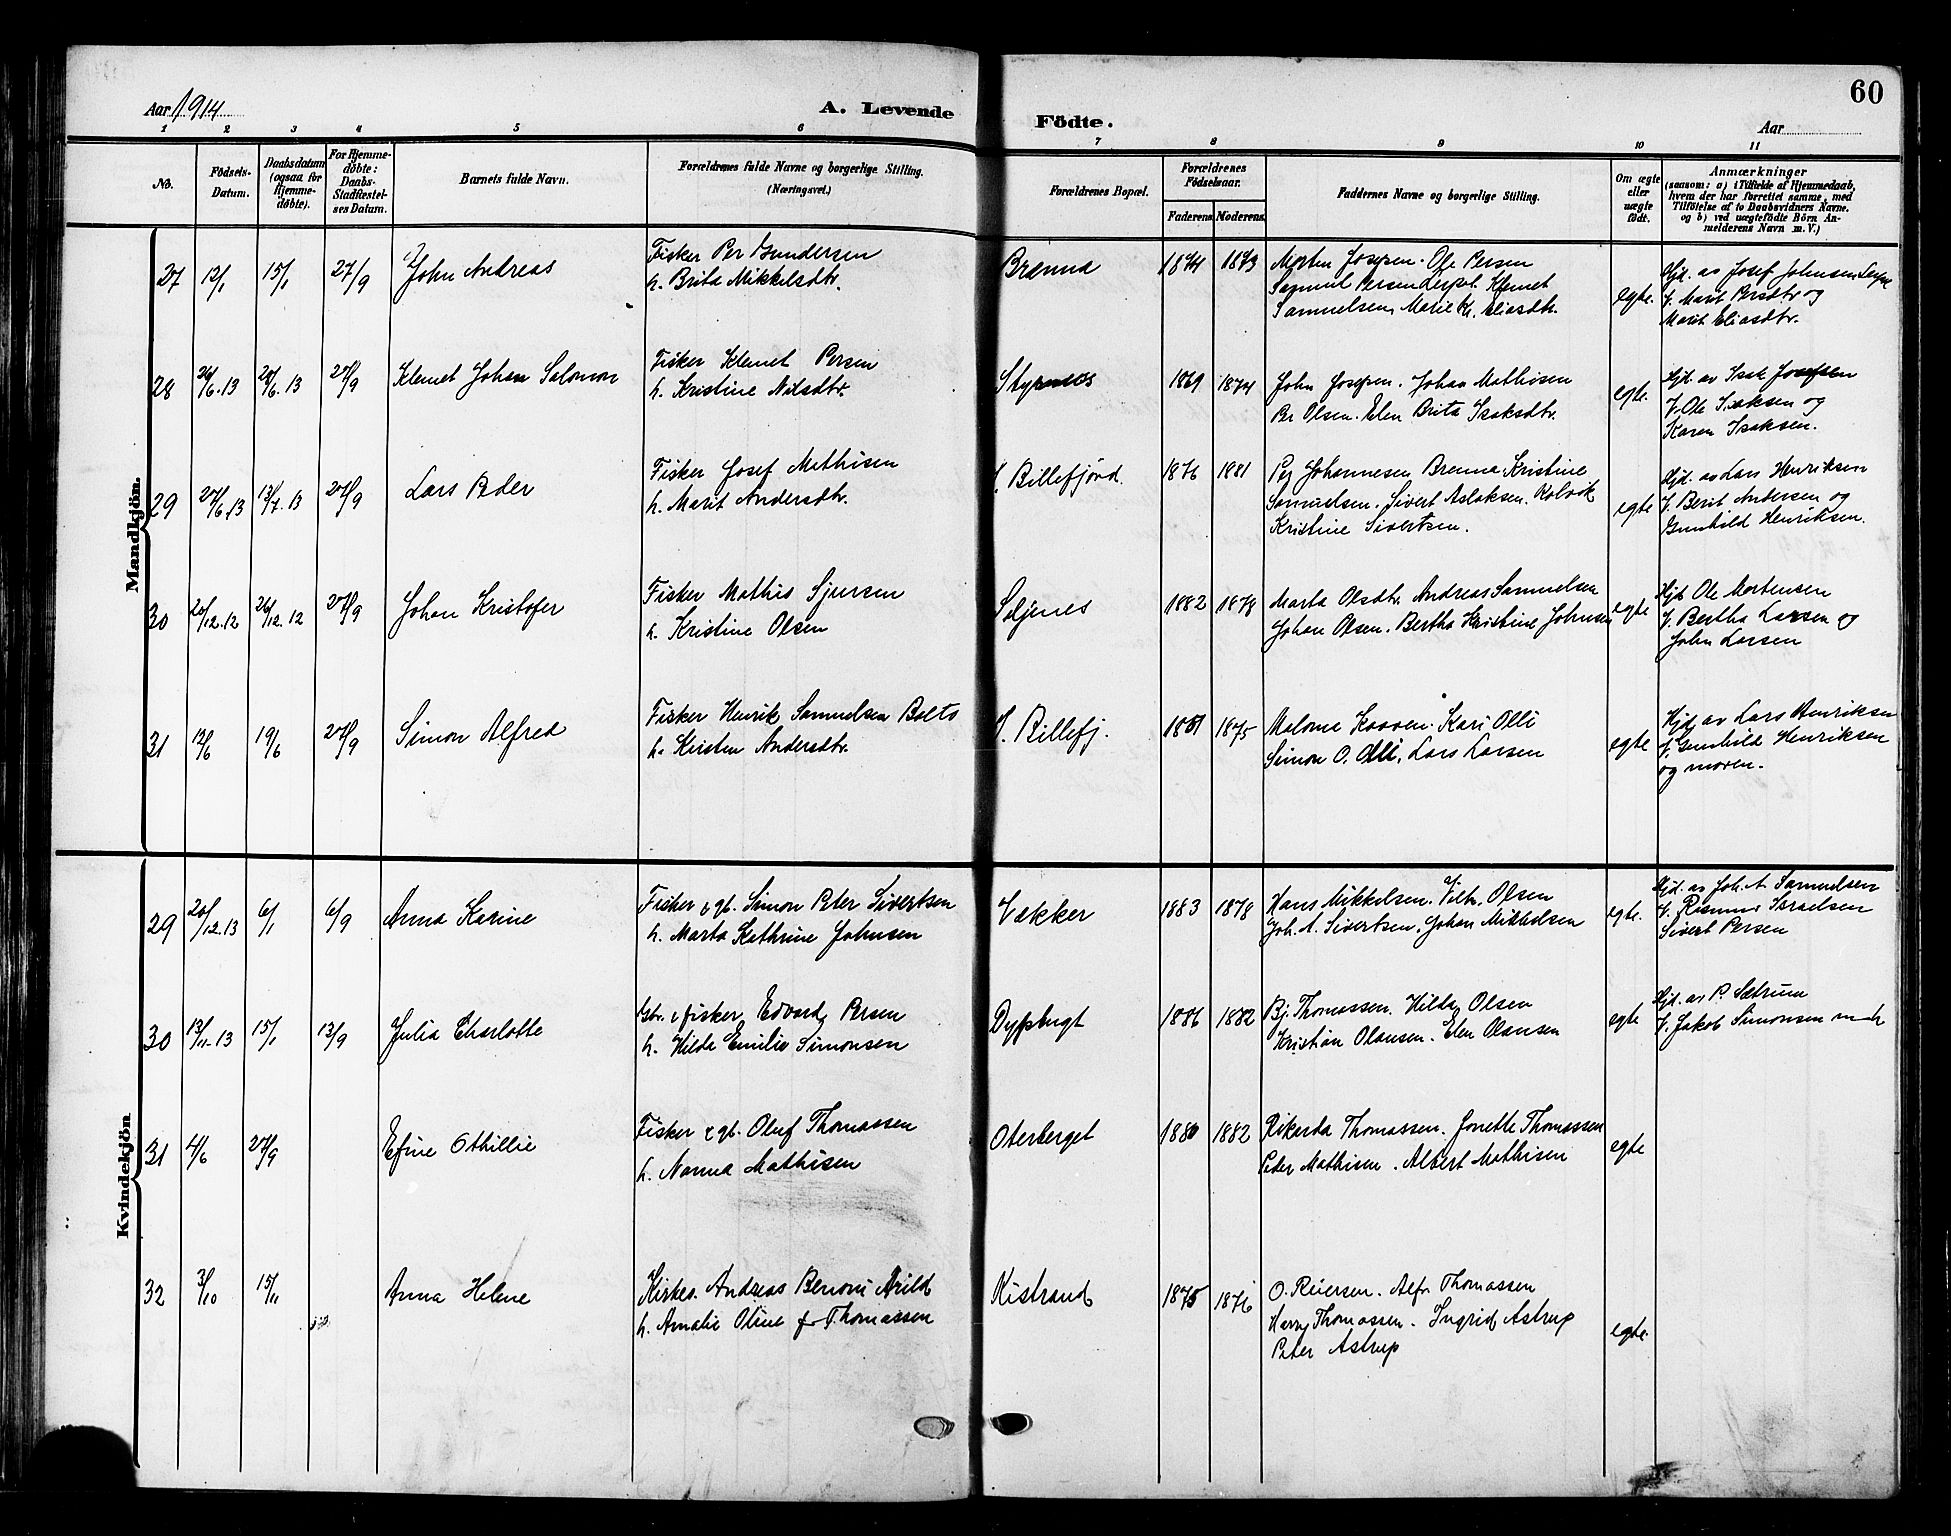 Aar 1914
A. Levende
Födte.
Aar
60
1 2 3 4 5 6 7 8 9 10 11
No.
Födsels-Datum.
Daabsdatum (ogsaa for Hjemmedöbte).
For Hjemmedöbte: Daabs-Stadfæstelses Datum.
Barnets fulde Navn.
Forældrenes fulde Navne og borgerlige Stilling. (Næringsvei.)
Forældrenes Bopæl.
Forældrenes Födselsaar.
Faderens Moderens
Faddernes Navne og borgerlige Stilling.
Om ægte eller uægte födt.
Anmærkninger
(saasom: a) i Tilfælde af Hjemmedaab,
hvem der har forrettet samme, med
Tilföielse af to Daabsvidners Navne.
og b) ved uægtefödte Börn An-
melderens Navn m. V.)
Mandkjön.
27 12/1 15/1 27/9 John Andreas
Fisker Per Gundersen
h. Brita Mikkelsdtr.
Brenna 1874 1873
Morten Josefsen. Ole Persen
Samuel Persen Klemet
Samuelsen, Marie Kr. Eliasdtr.
egte.
Hjd. av Josef Johnsen
V. Marit Persdtr og
Marit Eliasdtr.
28 26/6.13 29/6.13 27/9 Klemet Johan Salomon
Fisker Klemet Persen
h. Kristine Nilsdtr.
Styrnes 1869 1874
John Josefsen. Johan Mathisen
Per Olsen. Elen Brita Isaksdtr.
egte.
Hjd. av Isak Josefsen
V. Ole Isaksen og
Karen Isaksen.
29 27/6.13 13/7.13 27/9 Lars Peder
Fisker Josef Mathisen
h. Marit Andersdtr.
V. Billefjord. 1876 1881
Per Johannesen Brenna. Kristine
Samuelsen. Sivert Aslaksen. Kolvik
Kristine Sivertsen.
egte
Hjd. av Lars Henriksen
V. Berit Andersen og
Gunhild Henriksen.
30 20/12.12 26/12.12 27/9 Johan Kristofer
Fisker Mathis Sjursen
h. Kristine Olsen
Seljenes 1882 1878
Marta Olsdtr. Andreas Samuelsen
Johan Olsen. Bertha Kristine Johnsen
egte
Hjd. Ole Mortensen
V. Bertha Larsen og
John Larsen
31 12/6 19/6 27/9 Simon Alfred
Fisker Henrik Samuelsen Balto
h. Kirsten Andersdtr.
V. Billefj. 1861 1875
Malena Kaaven. Kari Olli
Simon O. Olli, Lars Larsen
egte
Hjd. av Lars Henriksen
V. Gunhild Henriksen
og moren.
Kvindekjön
29 20/12.13 6/1 6/9 Anna Karine
Fisker & gb. Simon Peter Sivertsen
h. Marta Kathrine Johnsen
Vækker 1883 1878
Hans Mikkelsen. Vilh. Olsen
Joh. A. Sivertsen. Johan Mikkelsen
egte.
Hjd. av Joh. A. Samuelsen
V. Rasmus Israelsen
Sivert Persen
30 13/11.13 15/1 13/9 Julia Charlotte
Gbr. & fisker Edvard Persen
h. Hilda Emilie Simonsen
Dypbugt 1886 1882
Bj. Thomassen. Hilda Olsen
Kristian Olausen. Elen Olausen
egte
Hjd. av P. Sætrum
V. Jakob Simonsen m. h
31 4/6 27/9 Efine Othillie
Fisker & gb. Oluf Thomassen
h. Nanna Mathisen
Oterberget 1880 1882
Rikarda Thomassen. Jonette Thomassen
Peter Mathisen. Albert Mathisen
egte
32 3/10 15/11 Anna Helene
Kirkes. Andreas Benoni Arild
h. Amalie Oline f. Thomassen
Kistrand 1875 1876
O. Reiersen. Alfr. Thomassen
Harry Thomassen. Ingrid Astrup
Peter Astrup
egte.